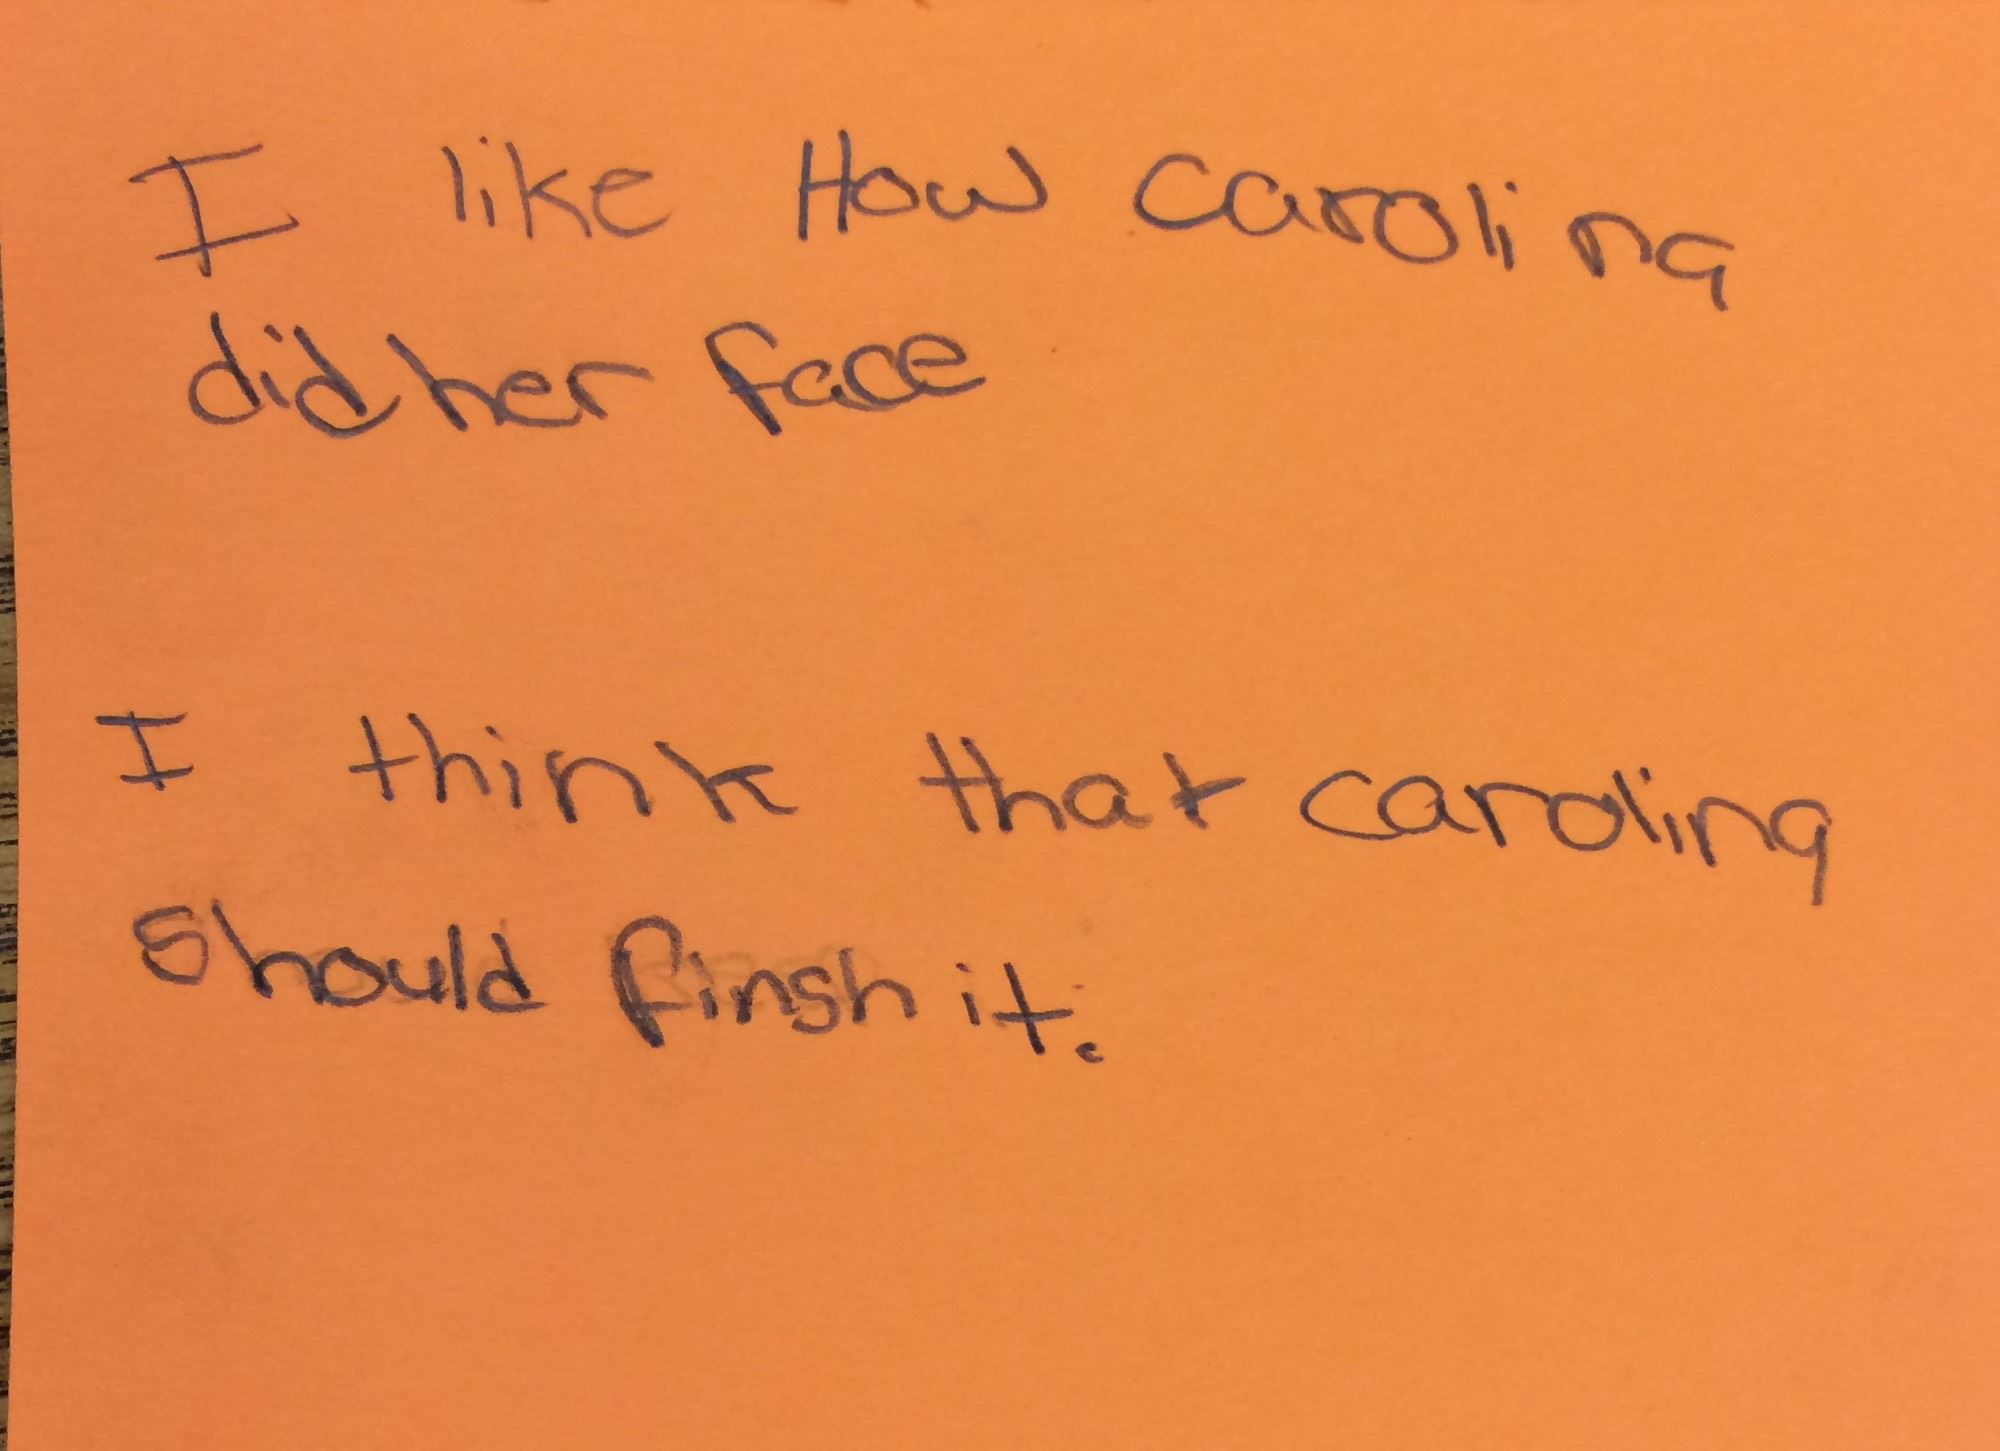 I like How carolina
did her face
I think that carolina
should finsh it.